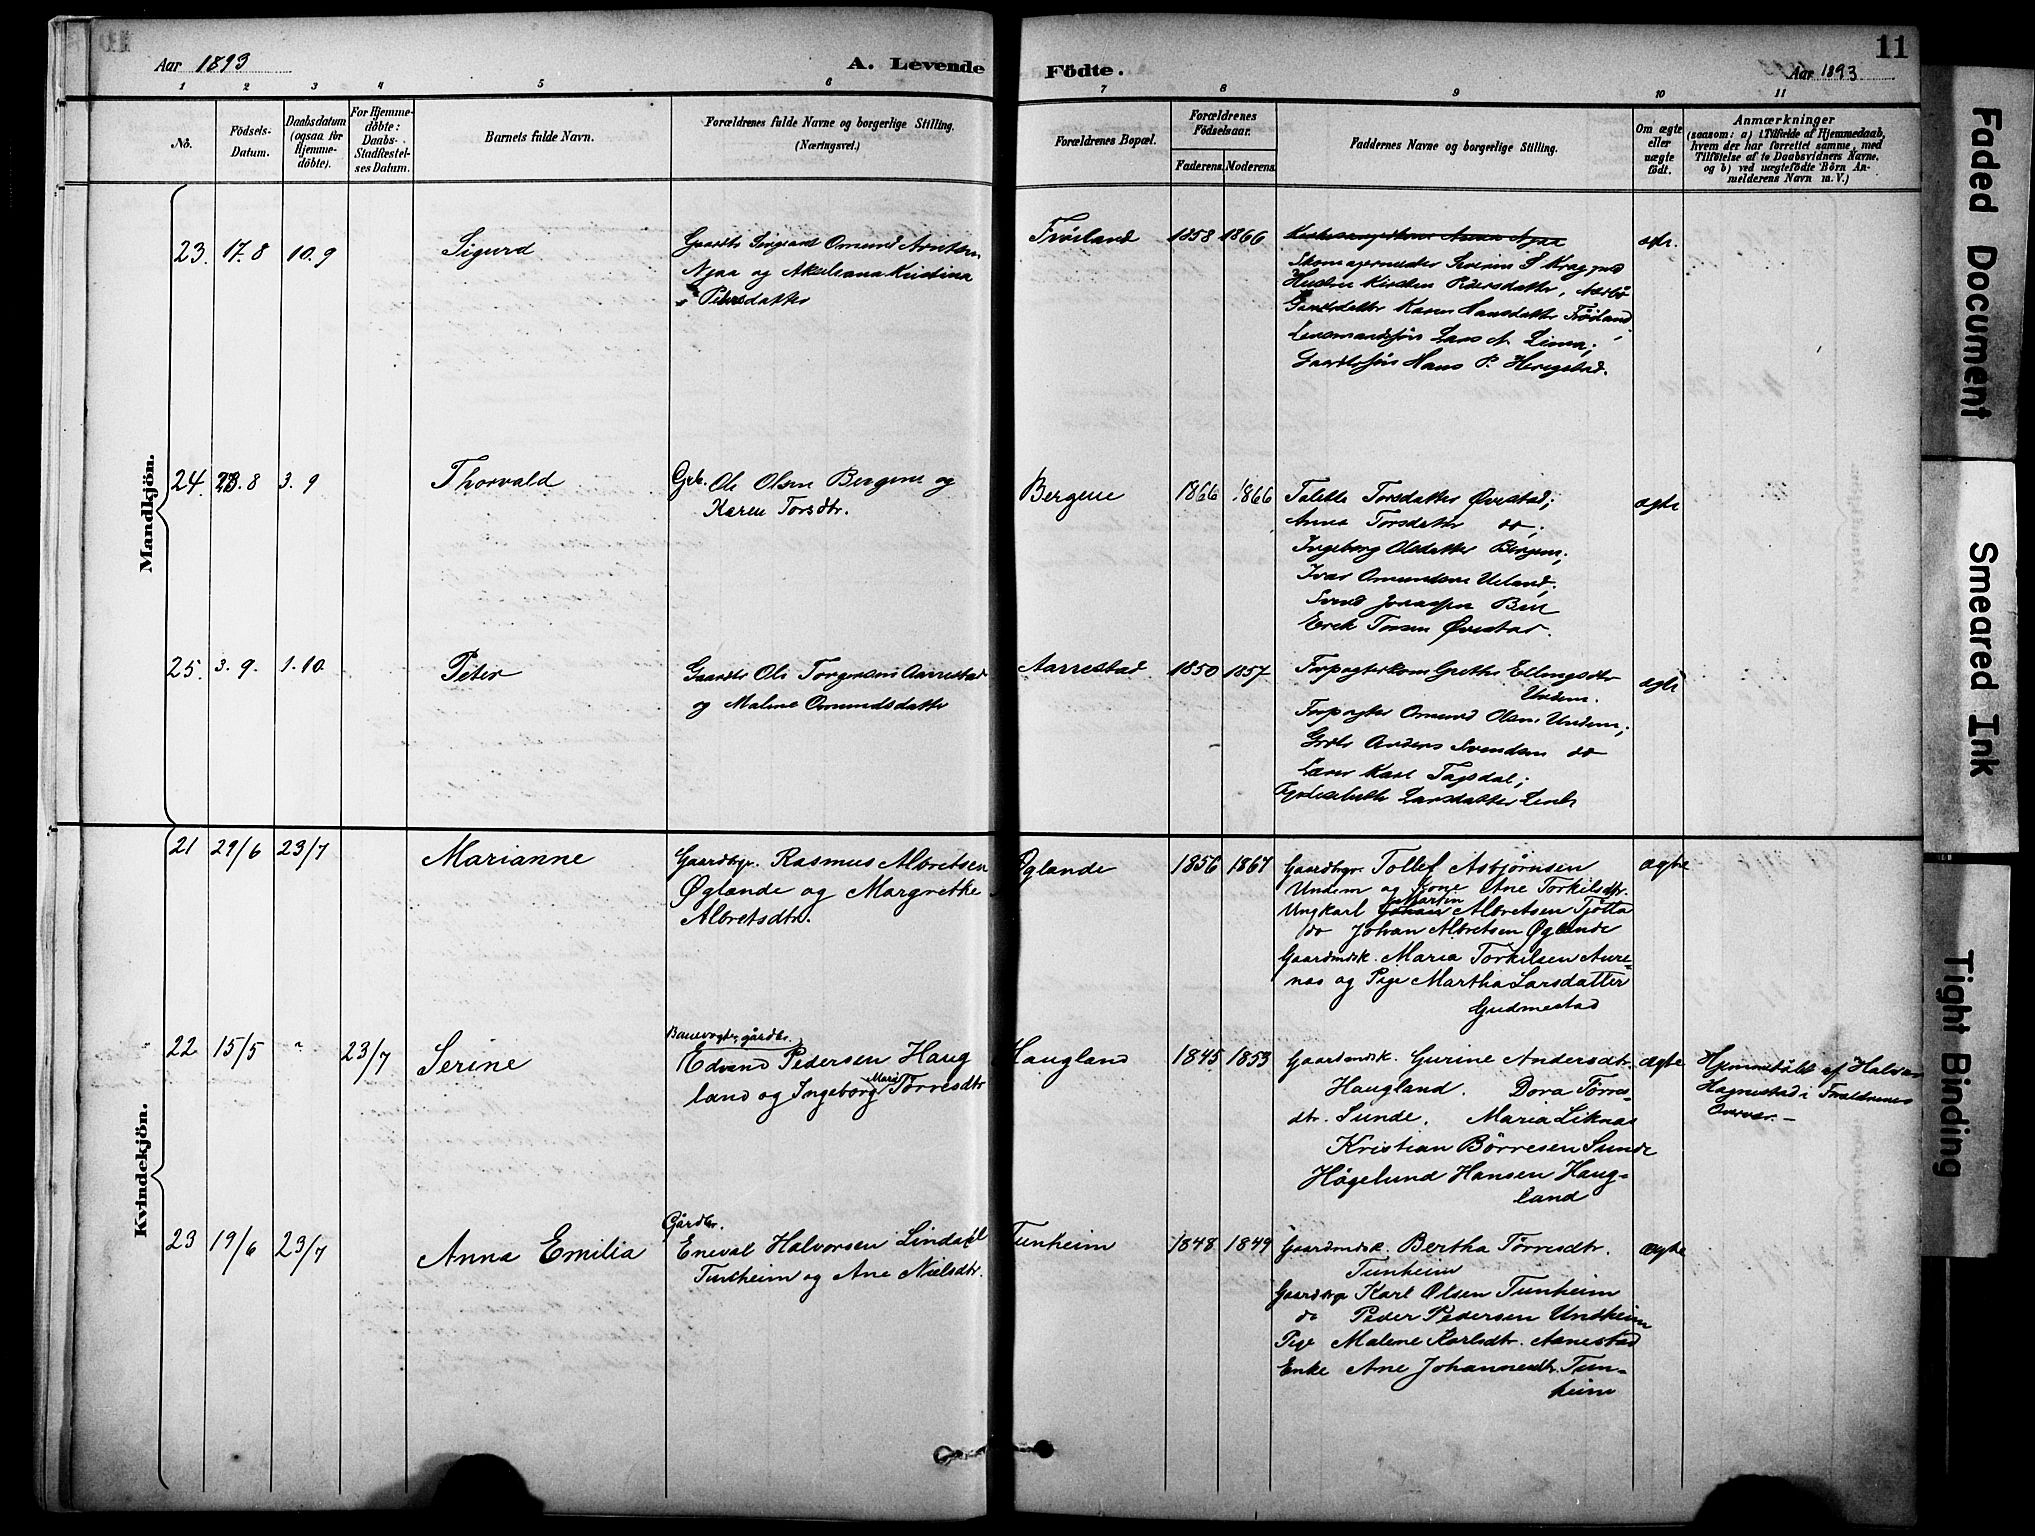 11
Aar 1893
A. Levende Födte.
Aar 1893
1 2 3 4 5 6 7 8 9 10 11
No.
Födsels-
Datum.
Daabsdatum
(ogsaa for
Hjemme-
döbte).
For Hjemme-
döbte:
Daabs-
Stadfæstel-
ses Datum.
Barnets fulde Navn.
Forældrenes fulde Navne og borgerlige Stilling.
(Næringsvei.)
Forældrenes Bopæl.
Forældrenes
Födselsaar.
Faderens. Moderens.
Faddernes Navne og borgerlige Stilling.
Om ægte
eller
uægte
født.
Anmærkninger
(saasom: a) i Tilfælde af Hjemmedaab,
hvem der har forrettet samme, med
Tilföielse af to Daabsvidners Navne,
og b) ved uægtefödte Börn An-
melderens Navn m. V.)
Mandkjön.
23. 17.8 10.9
Sigurd
Gaardbr Sergeant Omund Arntsen
Njaa og Akseliana Kristina
Petersdatter
Frøiland
1858 1866
Anna Njaa
Skomagermester Severin S Krag
Kirsten Petersdatter, Nærbø
Karen Hansdatter Frøiland,
Lensmandssøn Lars N. Lima;
Gaardbrsøn Hans P. Herigstad.
ægte.
24. 23.8 3.9
Thorvald
Grb. Ole Olsen Bergene og
Karen Torsdtr.
Bergene
1866 1866
Talette Torsdatter Øvestad;
Anna Torsdatter do;
Ingeborg Olsdatter Bergene;
Ivar Omundsen Ueland;
Svend Jonassen
Erek Torsen Øvestad.
ægte
25. 3.9. 1.10
Peter
Gaardbr Ole Torgersen Aarrestad
og Malene Omundsdatter
Aarrestad
1850 1857
Forpagterkone Grethe Ellingsdtr
Undem.
Forpagter Omund Olsen Undem;
Grdbr Anders Svendsen do
Lærer Karl Tagsdal;
Larsdatter
ægte
Kvindekjön.
21 29/6 23/7
Marianne
Gaardbgr. Rasmus Albretsen
Øglænde og Margrethe
Albretsdtr.
Øglende
1856 1867
Gaardbgr. Tollef Asbjørnsen
Undem og Kone Ane Torkilsdtr.
Martin
Ungkarl Johan Albretsen Tjøtta
do Johan Albretsen Øglende
Gaardmdsk. Maria Torkilsen Aure-
nas og Pige Martha Larsdatter
Gudmestad
ægte
22 15/5 " 23/7
Serine
Banevogter, gårdbr.
Edvard Pedersen Haug
Marie
land og Ingeborg Tørresdtr
Haugland
1845 1853
Gaardmdsk. Gurine Andersdtr.
Haugland. Dora Tørres-
dtr. Sunde. Maria Liknas
Kristian Børresen Sunde
Høgelund Hansen Haug-
land
ægte
Hjemmedøbt af Halvor
Hognestad i Forældrenes
Overvær. –
23 19/6 23/7
Anna Emilia
Gårdbr.
Eneval Halvorsen Lindahl
Tunheim og Ane Nielsdtr.
Tunheim
1848 1849
Gaardmdsk. Bertha Tørresdtr.
Tunheim
Gaardbgr Karl Olsen Tunheim
do Peder Pedersen Undheim
Pige Malene Karlsdtr. Aanestad
Enke Ane Johannesdtr. Tun-
heim
ægte
Faded Document
Smeared Ink
Tight Binding